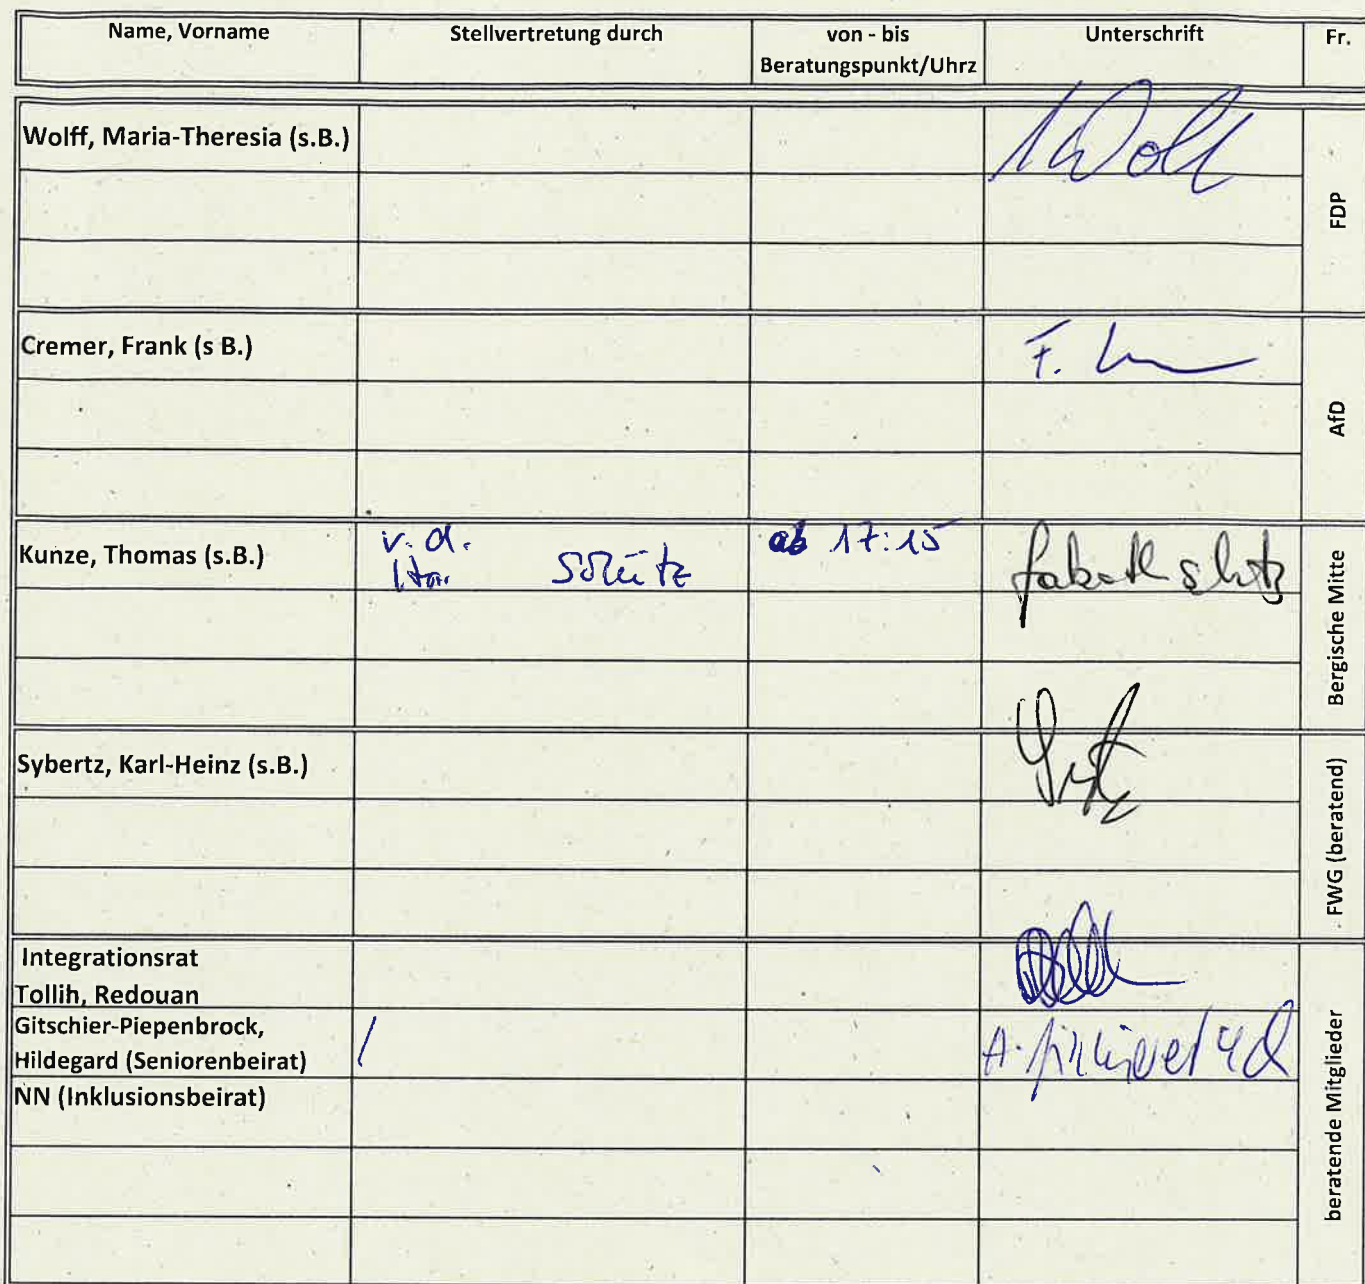 Name, Vorname
Stellvertretung durch
von - bis
Beratungspunkt/Uhrz
Unterschrift
Fr.
Wolff, Maria-Theresia (s.B.)
FDP
Cremer, Frank (s B.)
F.
AfD
Kunze, Thomas (s.B.)
v. d.
Schütz
ab 17:15
Bergische Mitte
Sybertz, Karl-Heinz (s.B.)
FWG (beratend)
Integrationsrat
Tollih, Redouan
Gitschier-Piepenbrock,
Hildegard (Seniorenbeirat)
/
NN (Inklusionsbeirat)
beratende Mitglieder